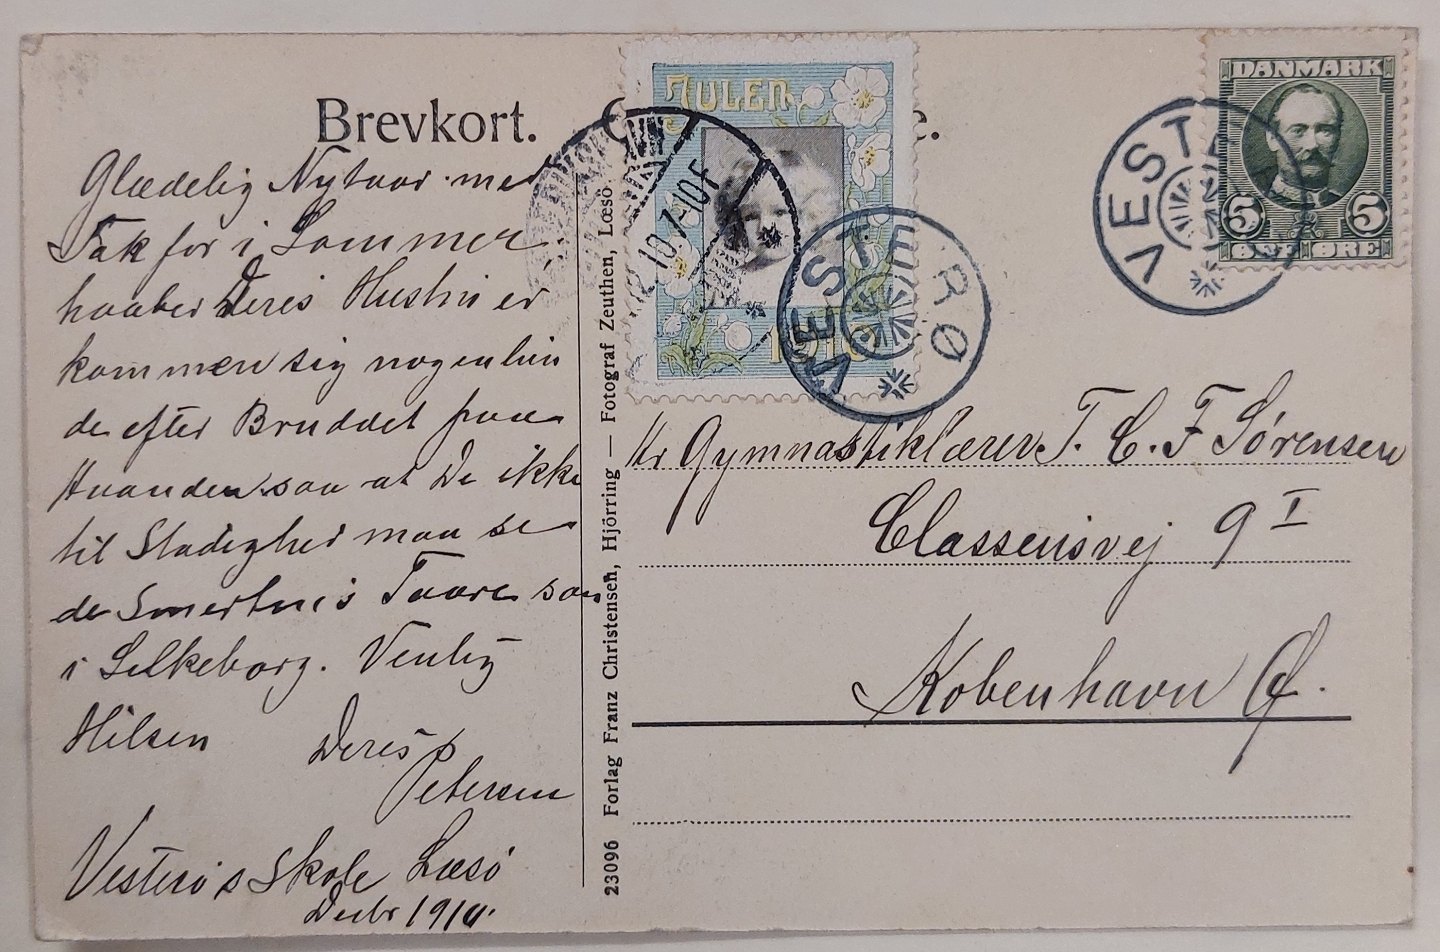 Brevkort.
Glædelig Nytaar med
Tak for i Sommer.
haaber Deres Hustru er
kommen sig nogenlun
de efter Bruddet paa
Haanden saa at De ikke
til Stadighed maa se
de Smertens Taare som
i Silkeborg. Venlig
Hilsen Deres
Petersen
Vesterø Skole Læsø
Decbr 1910.
23096 Forlag Franz Christensen, Hjörring — Fotograf Zeuthen, Læsö.
JULEN
1910
10.7-10F
VESTERØ
VESTERØ
DANMARK
5 5
ØRE ØRE
Hr Gymnastiklærer T. C. F Sørensen
Classensvej 9 I
København Ø.